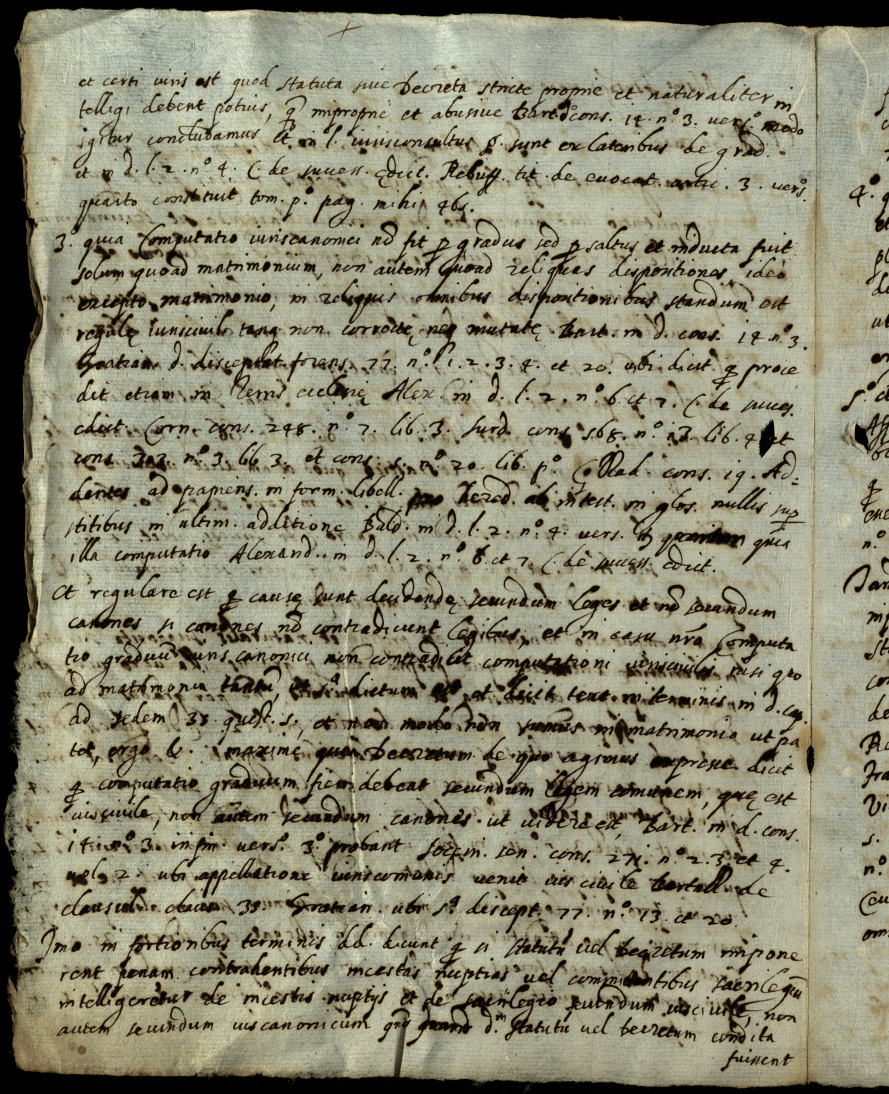 et certi iuris est quod statuta sive Decreta stricte proprie et naturaliter in
telligi debent potius, q̃ improprie et abusive Bart. cons. 14. n.º 3. vers. modo
igitur concludamus et in l. iurisconsultus §. sunt ex lateribus de grad.
et in d. l. 2. n.º 4. C. de success. edict. Rebuff. tit. de evocat. artic. 3. vers.
quarto constituit tom. p.º pag. mihi 465.
3.º quia Computatio iuriscanonici nõ fit p gradus sed p saltus et inducta fuit
solum quoad matrimonium, non autem quoad reliquas dispositiones ideo
excepto matrimonio, in reliquis omnibus dispositionibus standum est
regulę iuriscivilis tanq non correctę, neq mutatę Bart. in d. cons. 14. n.º 3.
Gratian. d. disceptat. forens. 77. n.º 1. 2. 3. 4. et 20. ubi dicit q proce
dit etiam in Terris ecclesię Alex. in d. l. 2. n.º 6. et 7. C. de succes.
edict. Corn. cons. 248. n.º 7. lib. 3. Surd. cons. 568. n.º 13. lib. 4. et
cons. 323. n.º 3. lib. 3. et cons. n.º 20. lib. p.º Rol. cons. 19. Ad=
dentes ad papiens. in form. libell. hered. ab intest. in glos. nullis sup
stitibus in ultim. additione Bald. in d. l. 2. n.º 4. vers. quia
illa computatio Alexand. in d. l. 2. n.º 6. et 7. C. de success. edict.
Et regulare est q causę sunt decidendę secundum leges et nõ secundum
canones si canones nõ contradicunt legibus, et in casu nrõ Computa
tio graduũ iuris canonici non contradicit computationi iuriscivilis nisi quo
ad matrimonia tantũ, et s.ª dictum est et dicit text. in terminis in d. cap.
ad sedem 35. quest. 5., et non modo non sumus in matrimonio ut pa
tet, ergo &. maxime quia Decretum de quo agimus expresse dicit
q computatio graduum fieri debeat secundum legem comunem, quę est
iuscivile, non autem secundum canones ut videre est, Bart. in d. cons.
14. n.º 3. in fin. vers. 3.º probant Socin. sen. cons. 271. n.º 2. 3. et 4.
vol. 2. ubi appellatione iuriscomunis venit ius civile Bartell. de
clausul. claus. 35. Gratian. ubi s.ª discept. 77. n.º 13. et 20.
Imo in fortioribus terminis dd. dicunt q si statutũ vel Decretum impone
rent penam contrahentibus incestas nuptias vel comittentibus sacrilegiũ
intelligeretur de incestis nuptijs et de sacrilegio secundum iuscivile, non
autem secundum iuscanonicum d.ᵐ statutũ vel Decretum condita
fuissent